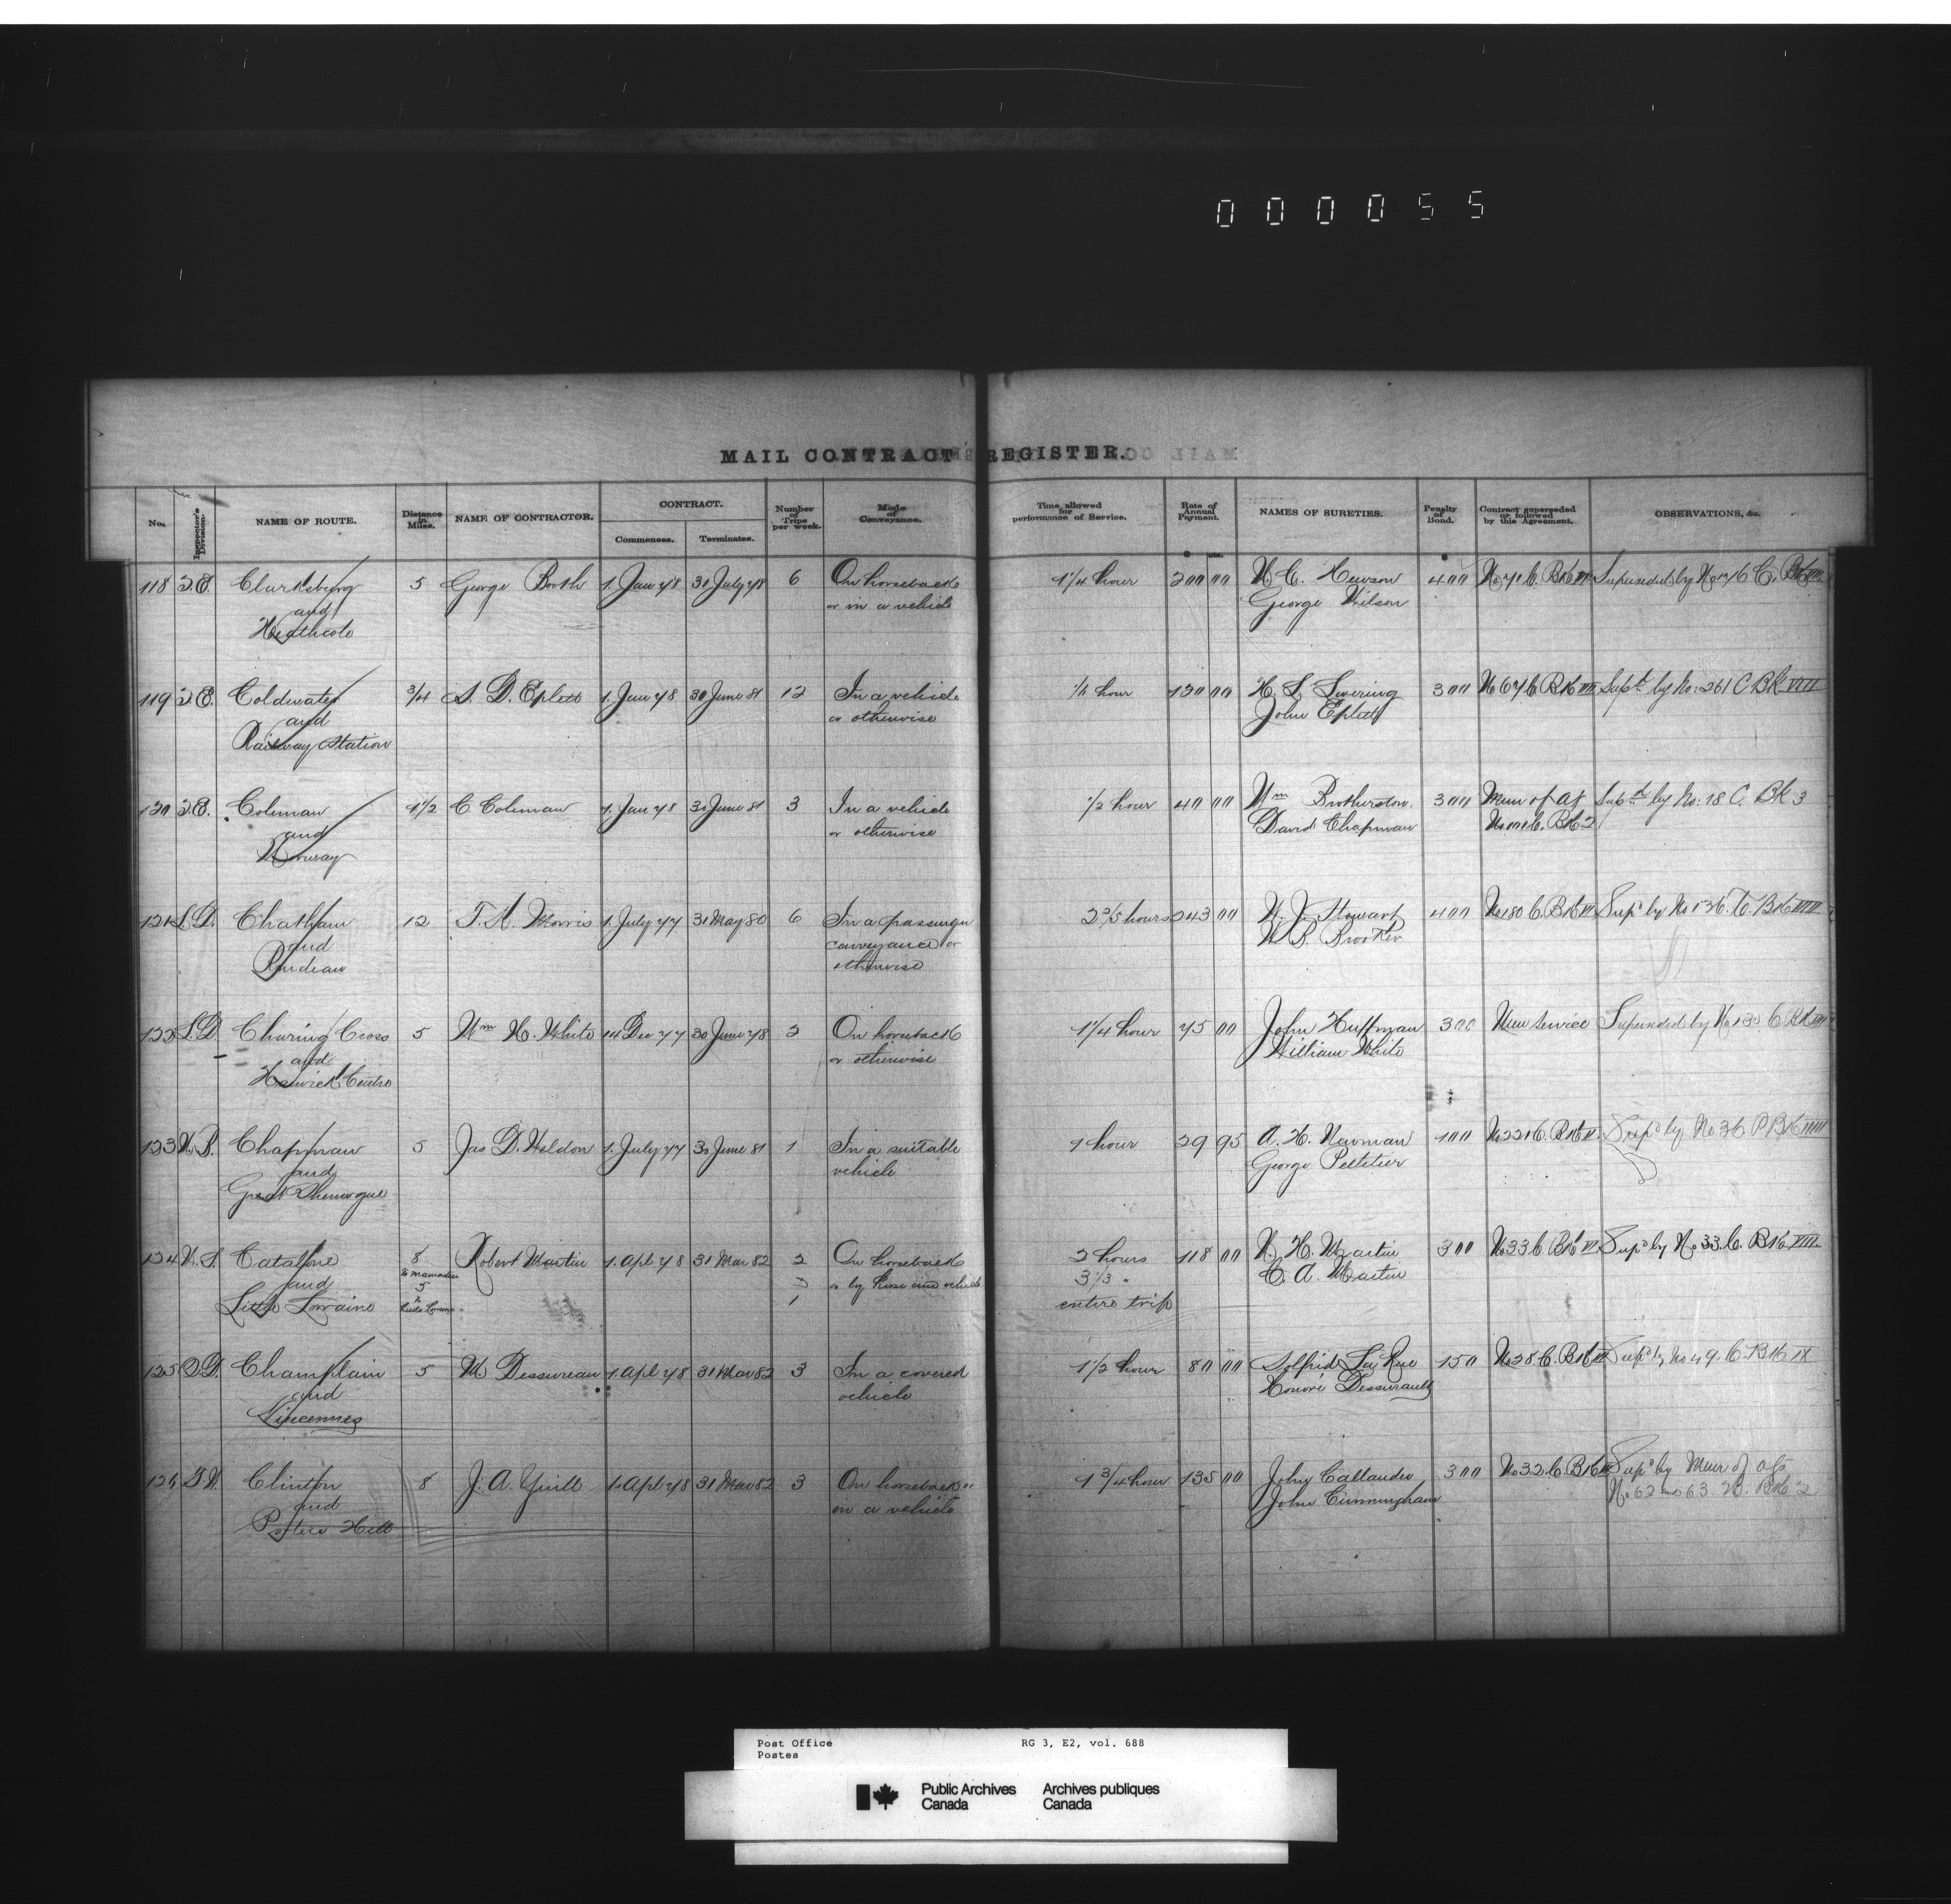 000055
MAIL CONTRACT REGISTER.
No. Inspector's Division. NAME OF ROUTE. Distance in Miles. NAME OF CONTRACTOR. CONTRACT. Commences. Terminates. Number of Trips per week. Mode of Conveyance. Time allowed for performance of Service. Rate of Annual Payment. NAMES OF SURETIES. Penalty of Bond. Contract superseded or followed by this Agreement. OBSERVATIONS, &c.
$ cts. $
118 Clarksburg 5 George Booth 1. Jan 78 31 July 78 6 On horseback 1 1/4 hour 200 00 W. C. Hewson 400 Superseded by
and or in a vehicle George Wilson
Heathcote
119 Coldwater 3/4 S. D. Eplett 1. Jan 78 30 June 81 12 In a vehicle hour 120 00 H. L. Lovering 300 No 67 C. Bk VI Supd by No: 261 C Bk VIII
and or otherwise John Eplett
Railway Station
120 Coleman 1 1/2 C. Coleman 1. Jan 78 30 June 81 3 In a vehicle 1/2 hour 40 00 Wm Brotherston. 300 Mem of Ag Supd by No: 18 C. Bk 3
and or otherwise David Chapman C. Bk 2
Norway
121 L.D. Chatham 12 T. A. Morris 1. July 77 31 May 80 6 In a passenger 2 2/5 hours 243 00 W. J. Stewart 400 No 180 C. Bk VI Supd by
and conveyance or W. B. Brooker
Rondeau otherwise
122 L.D. Charing Cross 5 Wm H. White 14 Dec 77 30 June 78 2 On horseback 1 1/4 hour 75 00 John Huffman 300 New Service Superseded by
and or otherwise William White
Harwich Centre
123 N.B. Chapman 5 Jas D. Weldon 1. July 77 30 June 81 1 In a suitable 1 hour 29 95 A. H. Newman 100 No 221 C. Bk VI. Supd by
and vehicle George Peltetier
Great Shemogue
124 N.S. Catalone 8 Robert Martin 1. Apl 78 31 Mar 82 2 On horseback 2 hours 118 00 N. H. Martin 300 No 33 C. Bk VI. Supd by No 33. C. Bk VIII.
and to Mainadieu 5 2 or by horse and vehicle 3 1/3 " C. A. Martin
Little Lorraine to Little Lorraine 1 entire trip
125 Q.D. Champlain 5 M Dessureau 1. Apl 78 31 Mar 82 3 In a covered 1 1/2 hour 80 00 Solfrid La Rue 150 No 28. C. Bk VI Supd by No 49. C. Bk IX
and vehicle Honoré Dessurault
Vincennes
126 Clinton 8 J. A. Yuill 1. Apl 78 31 Mar 82 3 On horseback or 1 3/4 hour 135 00 John Callander 300 No 32. C. Bk VI Supd by Mem of ags
and in a vehicle John Cunningham No 62 and 63. Bk 2
Porters Hill
Post Office RG 3, E2, vol. 688
Postes
Public Archives Archives publiques
Canada Canada